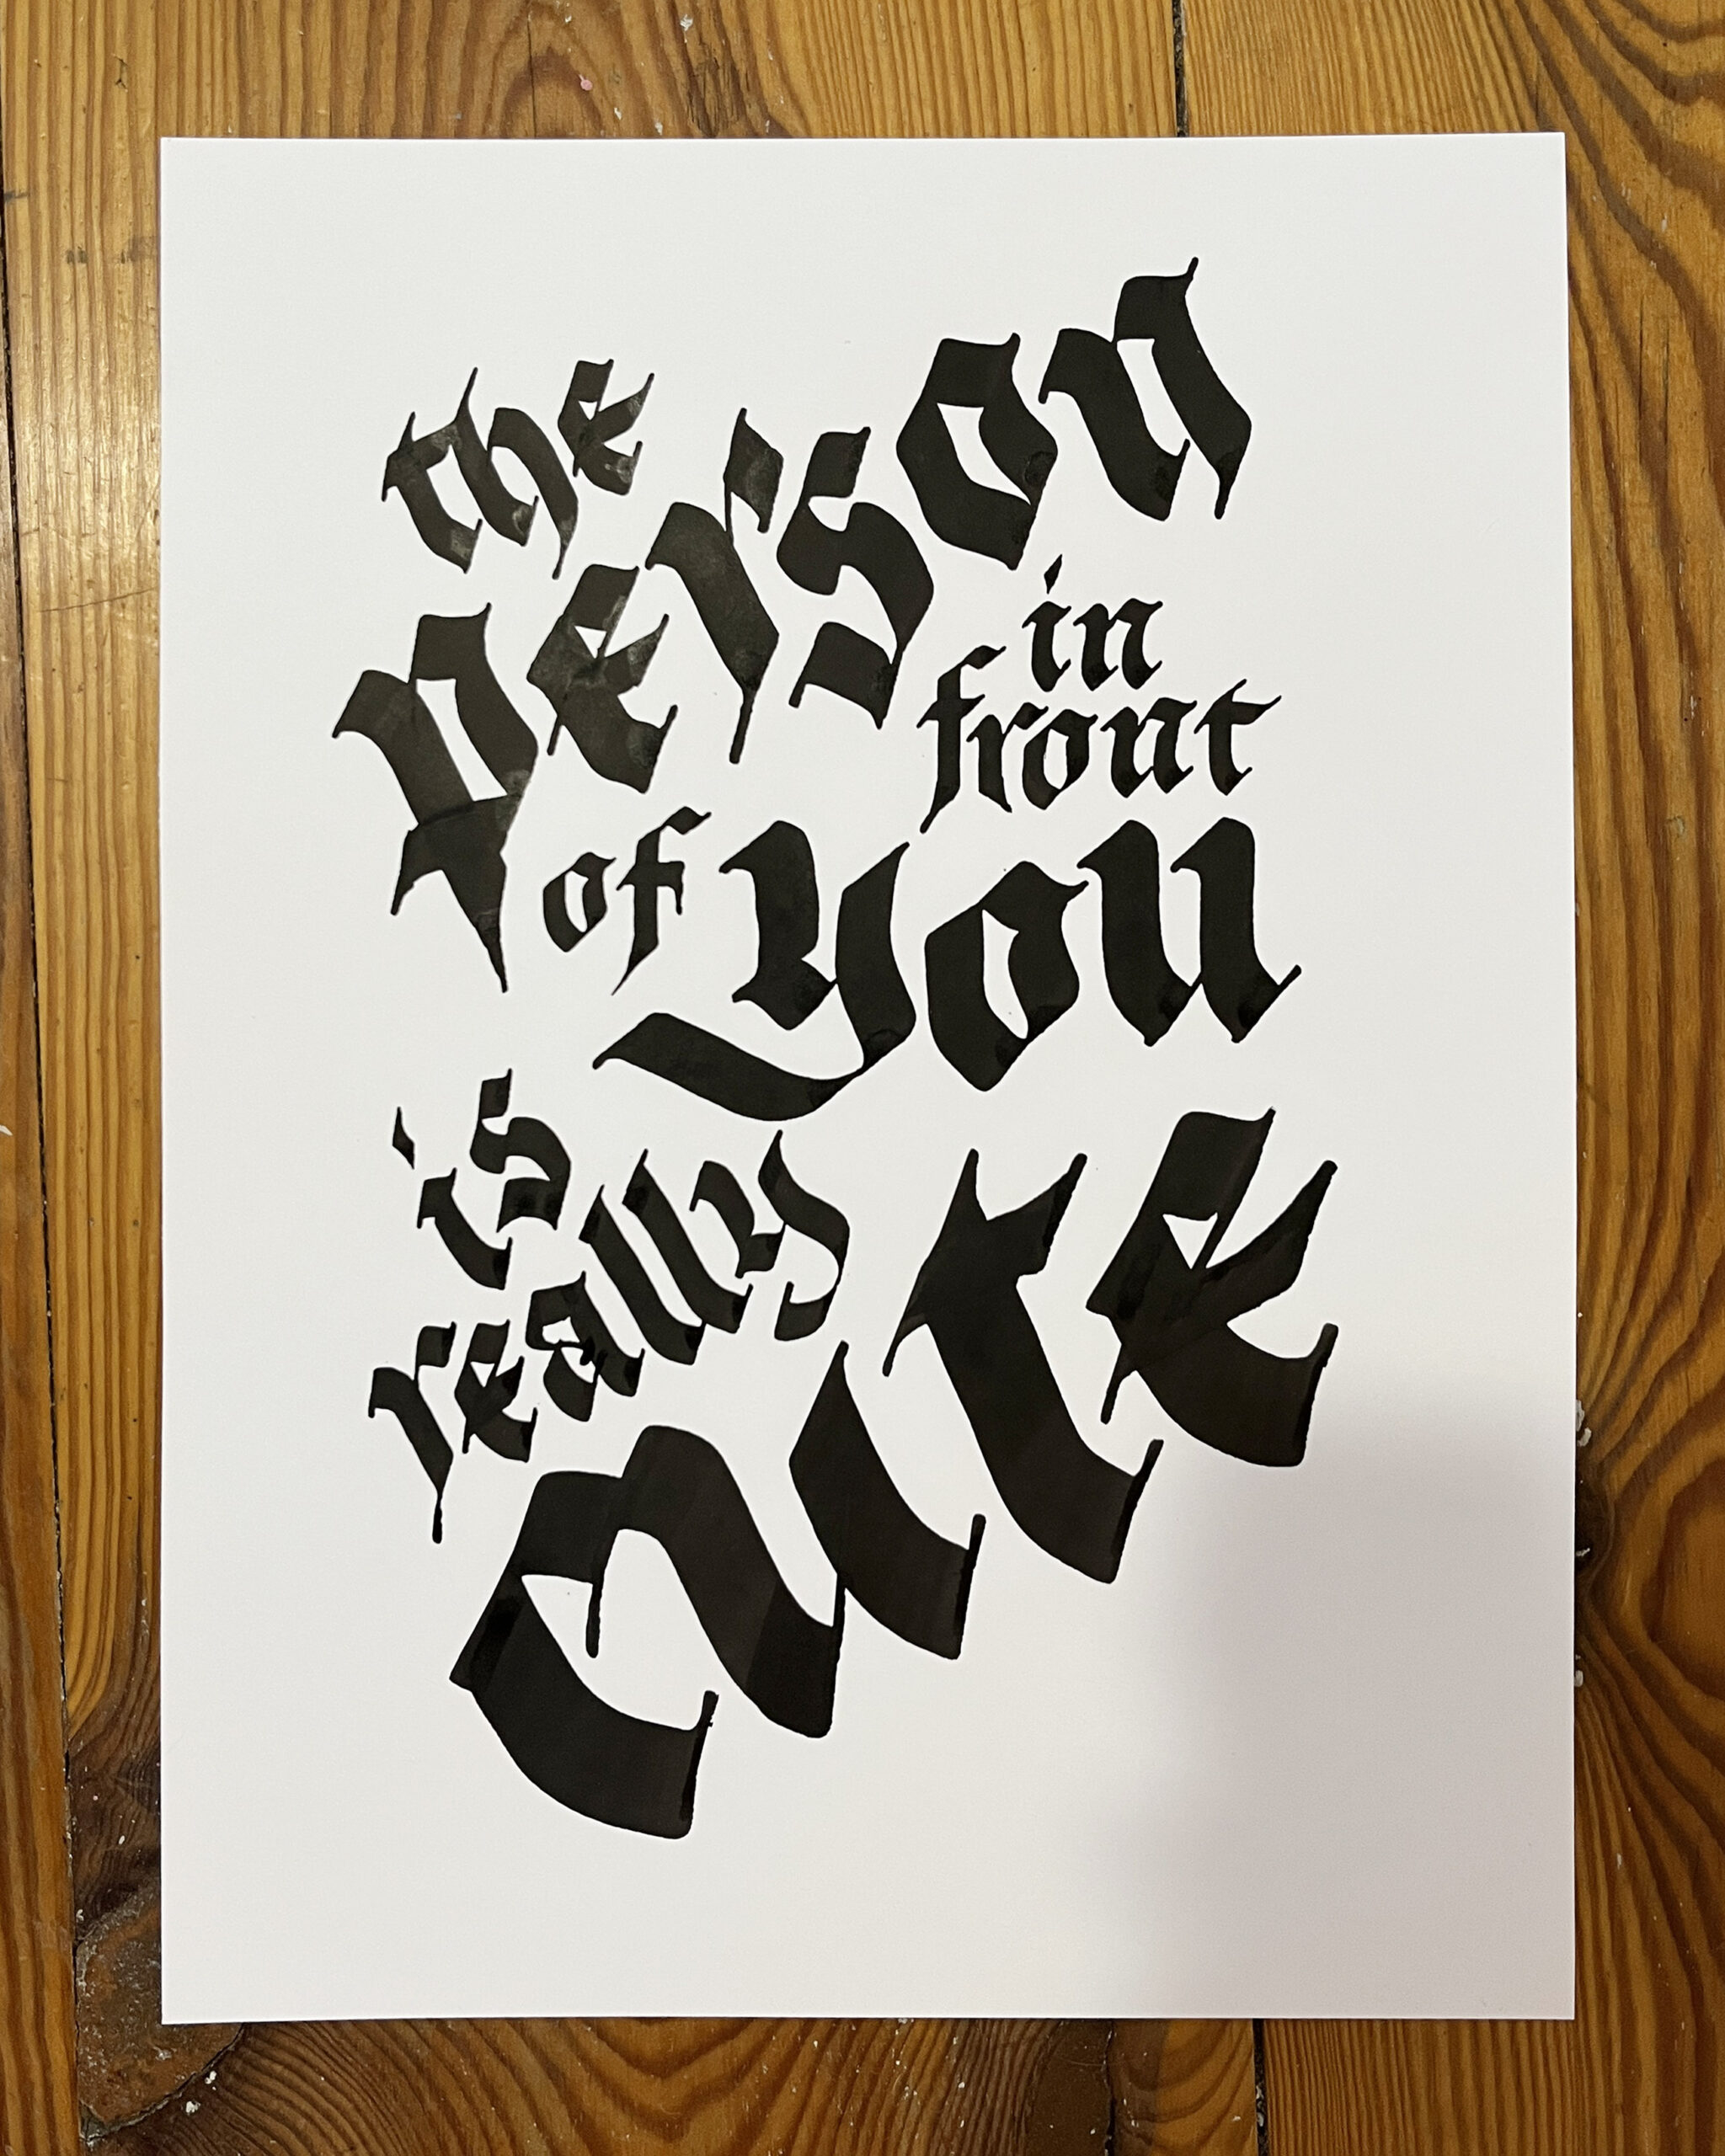 the
person
in
front
of you
is
really
cute